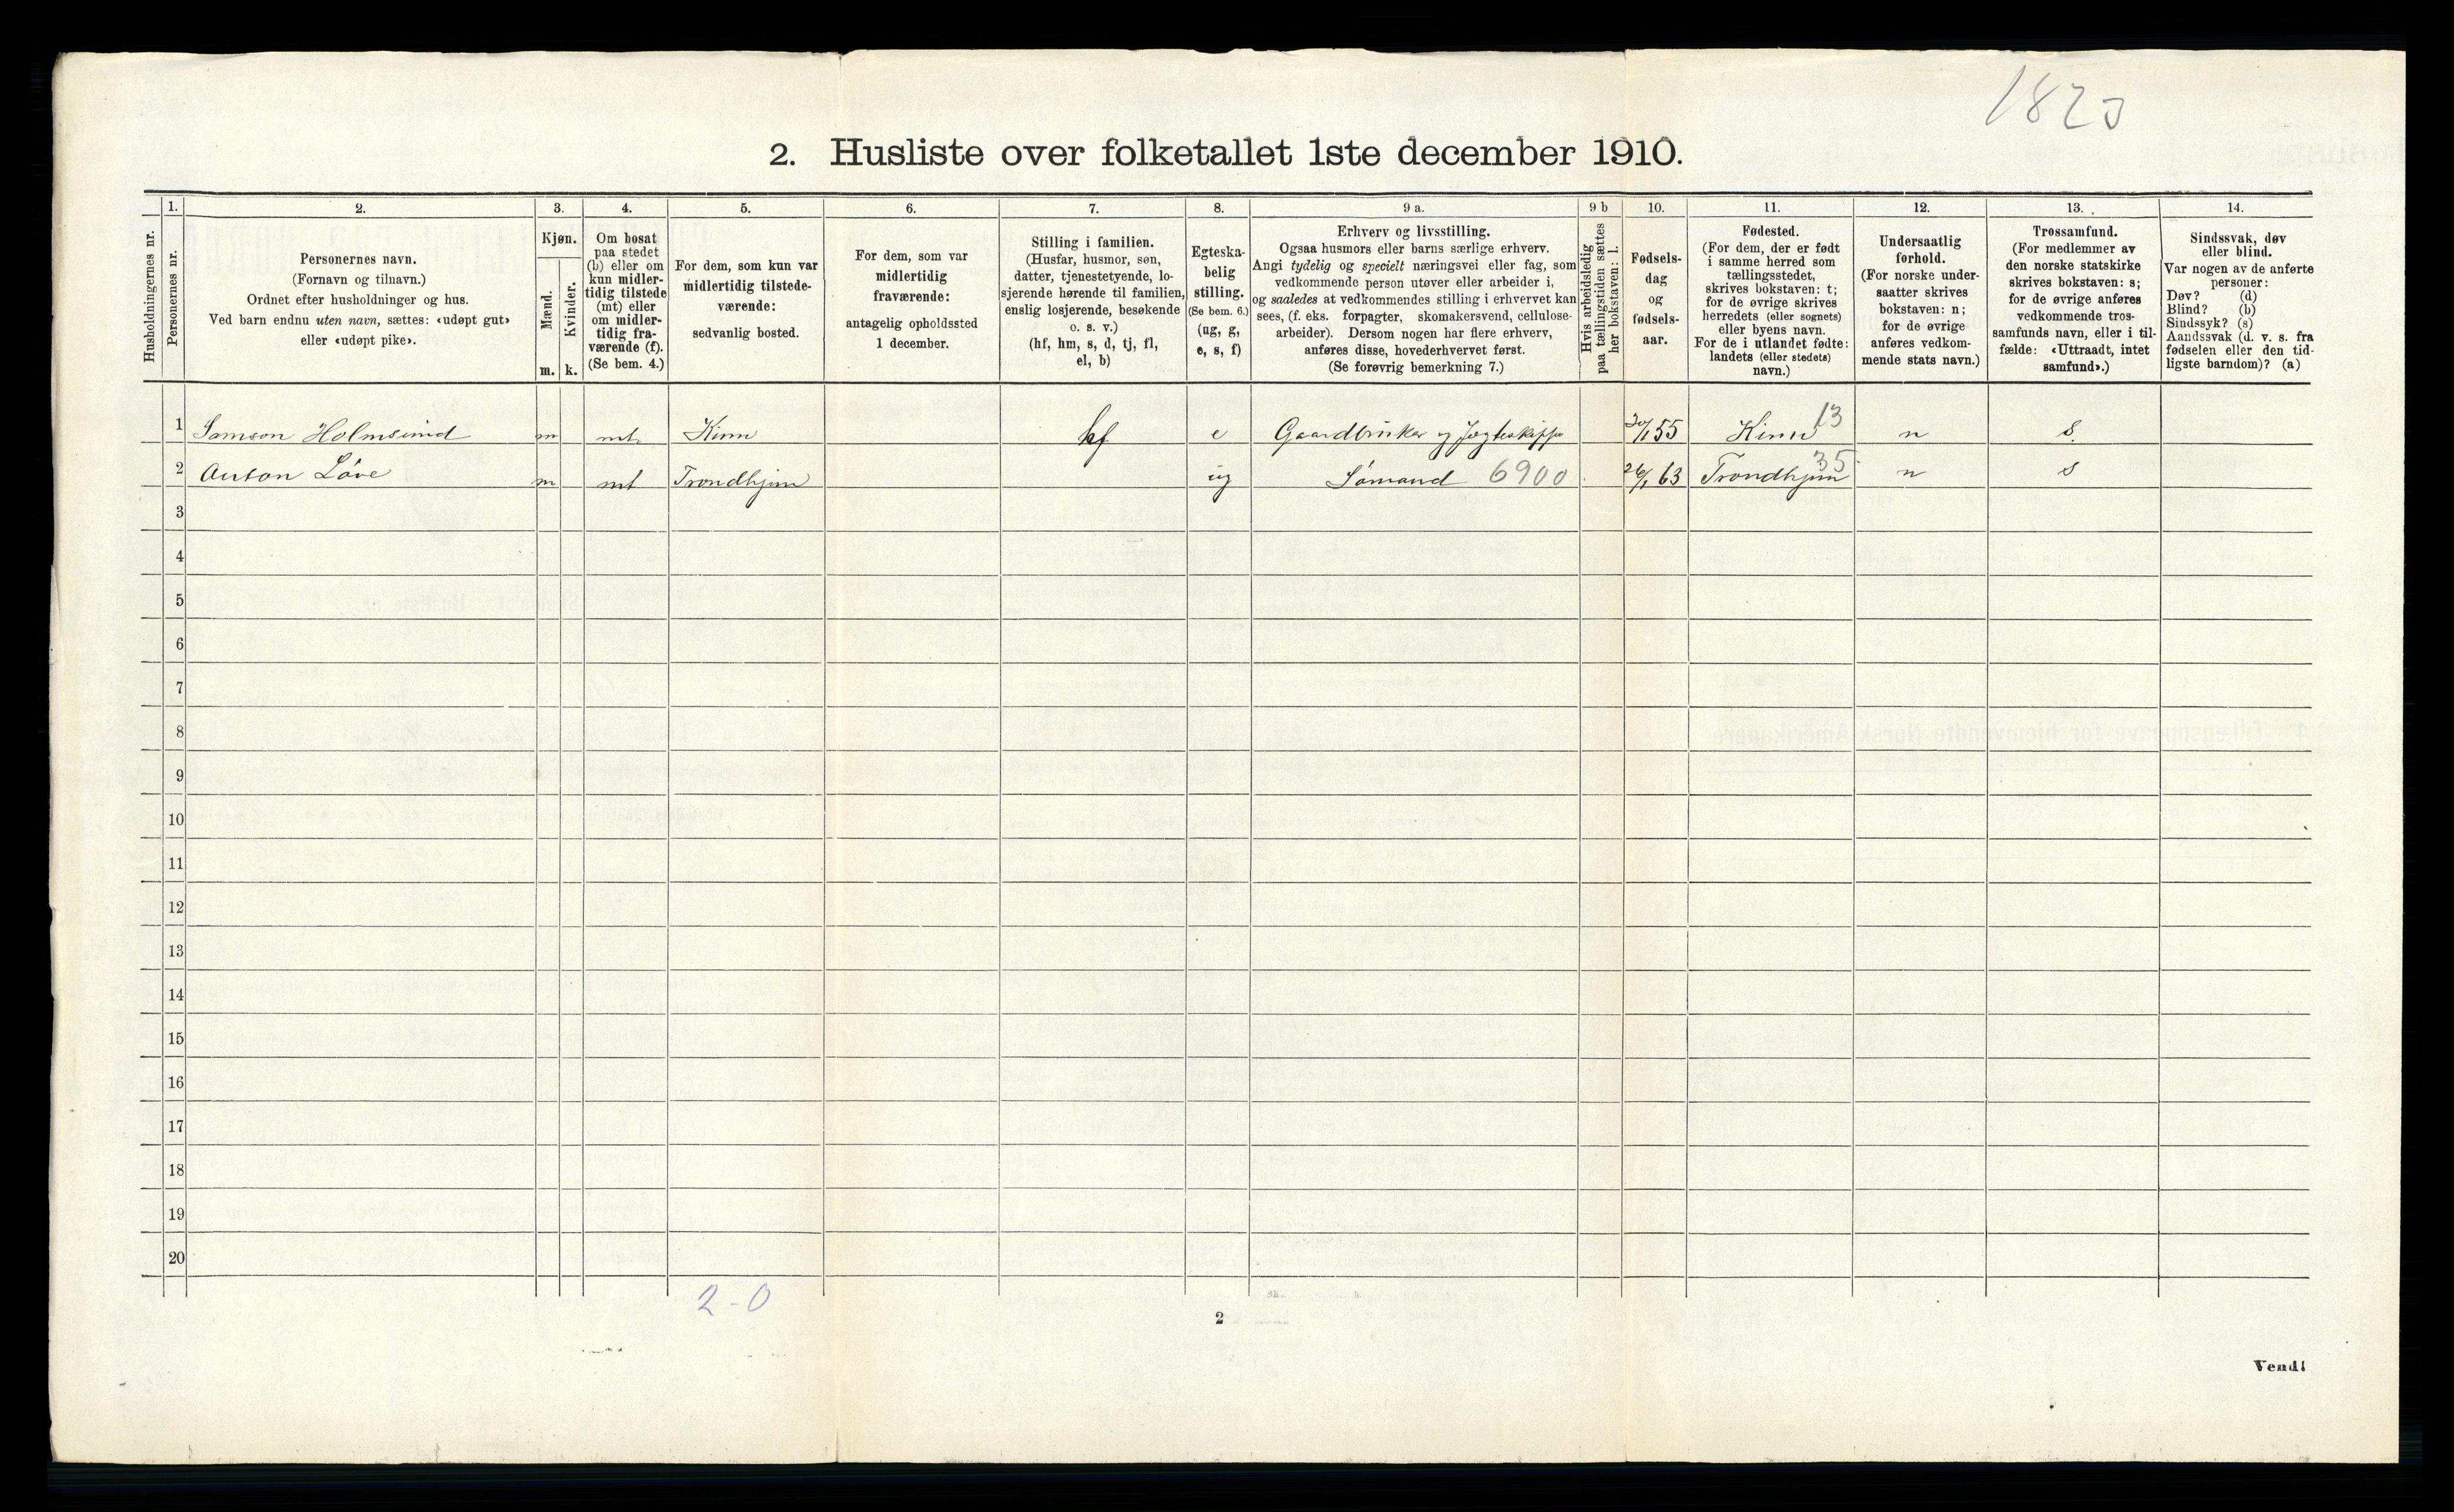 182
2. Husliste over folketallet 1ste december 1910.
Husholdningernes nr.
1.
Personernes nr.
2.
Personernes navn.
(Fornavn og tilnavn.)
Ordnet efter husholdninger og hus.
Ved barn endnu uten navn, sættes: «udøpt gut»
eller «udøpt pike».
3.
Kjøn.
Mænd.
Kvinder.
m. k.
4.
Om bosat
paa stedet
(b) eller om
kun midler-
tidig tilstede
(mt) eller
om midler-
tidig fra-
værende (f).
(Se bem. 4.)
5.
For dem, som kun var
midlertidig tilstede-
værende:
sedvanlig bosted.
6.
For dem, som var
midlertidig
fraværende:
antagelig opholdssted
1 december.
7.
Stilling i familien.
(Husfar, husmor, søn,
datter, tjenestetyende, lo-
sjerende hørende til familien,
enslig losjerende, besøkende
o. s. v.)
(hf, hm, s, d, tj, fl,
el, b)
8.
Egteska-
belig
stilling.
(Se bem. 6.)
(ug, g,
e, s, f)
9 a.
Erhverv og livsstilling.
Ogsaa husmors eller barns særlige erhverv.
Angi tydelig og specielt næringsvei eller fag, som
vedkommende person utøver eller arbeider i,
og saaledes at vedkommendes stilling i erhvervet kan
sees, (f. eks. forpagter, skomakersvend, cellulose-
arbeider). Dersom nogen har flere erhverv,
anføres disse, hovederhvervet først.
(Se forøvrig bemerkning 7.)
9 b
Hvis arbeidsledig
paa tællingstiden sættes
her bokstaven: l.
10.
Fødsels-
dag
og
fødsels-
aar.
11.
Fødested.
(For dem, der er født
i samme herred som
tællingsstedet,
skrives bokstaven: t;
for de øvrige skrives
herredets (eller sognets)
eller byens navn.
For de i utlandet fødte:
landets (eller stedets)
navn.)
12.
Undersaatlig
forhold.
(For norske under-
saatter skrives
bokstaven: n;
for de øvrige
anføres vedkom-
mende stats navn.)
13.
Trossamfund.
(For medlemmer av
den norske statskirke
skrives bokstaven: s;
for de øvrige anføres
vedkommende tros-
samfunds navn, eller i til-
fælde: «Uttraadt, intet
samfund».)
14.
Sindssvak, døv
eller blind.
Var nogen av de anførte
personer:
Døv? (d)
Blind? (b)
Sindssyk? (s)
Aandssvak (d. v. s. fra
fødselen eller den tid-
ligste barndom)? (a)
1 Samson Holmsund m mt Kinn hf e Gaardbruker og Jægteskipper 30/1 55 Kinn 13 n s.
2 Anton Löve m mt Trondhjem ug Sömand 6900 26/1 63 Trondhjem 35 n s
3
4
5
6
7
8
9
10
11
12
13
14
15
16
17
18
19
20
2-0
2
Vend!